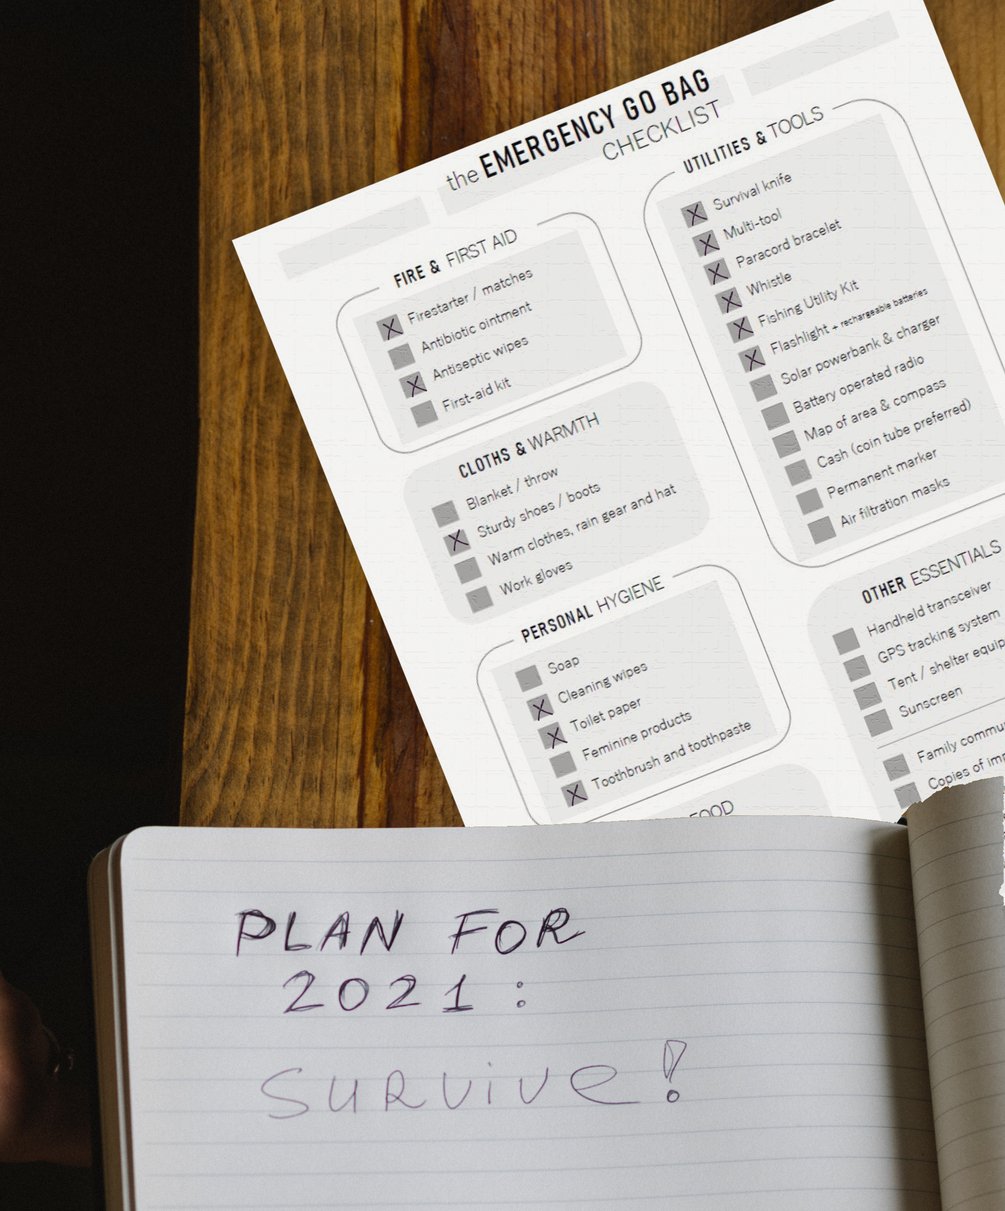 the EMERGENCY GO BAG
CHECKLIST
FIRE & FIRST AID
Firestarter / matches
Antibiotic ointment
Antiseptic wipes
First-aid kit
CLOTHS & WARMTH
Blanket / throw
Sturdy shoes / boots
Warm clothes, rain gear and hat
Work gloves
PERSONAL HYGIENE
Soap
Cleaning wipes
Toilet paper
Feminine products
Toothbrush and toothpaste
FOOD
UTILITIES & TOOLS
Survival knife
Multi-tool
Paracord bracelet
Whistle
Fishing Utility Kit
Flashlight + rechargeable batteries
Solar powerbank & charger
Battery operated radio
Map of area & compass
Cash (coin tube preferred)
Permanent marker
Air filtration masks
OTHER ESSENTIALS
Handheld transceiver
GPS tracking system
Tent / shelter equip
Sunscreen
Family commu
Copies of im
PLAN FOR
2021 :
SURViVe!